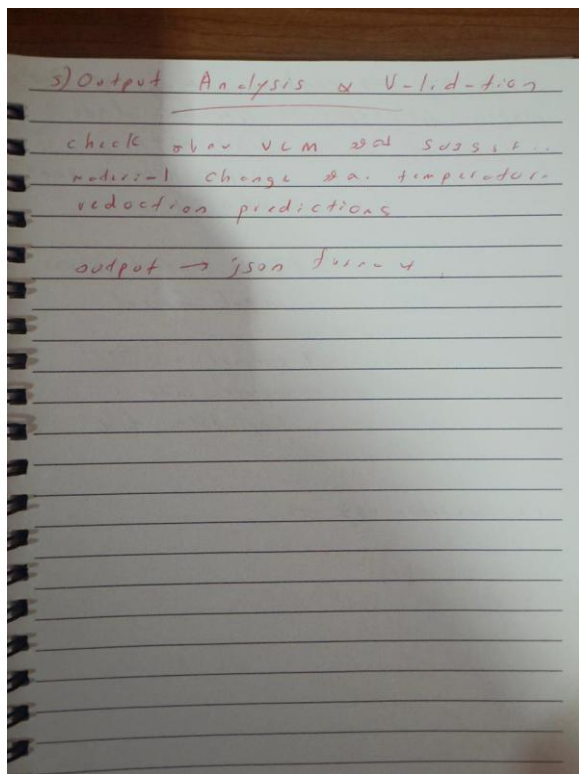 5) Output Analysis & Validation
check VLM
material change temperature
reduction predictions
output → json format